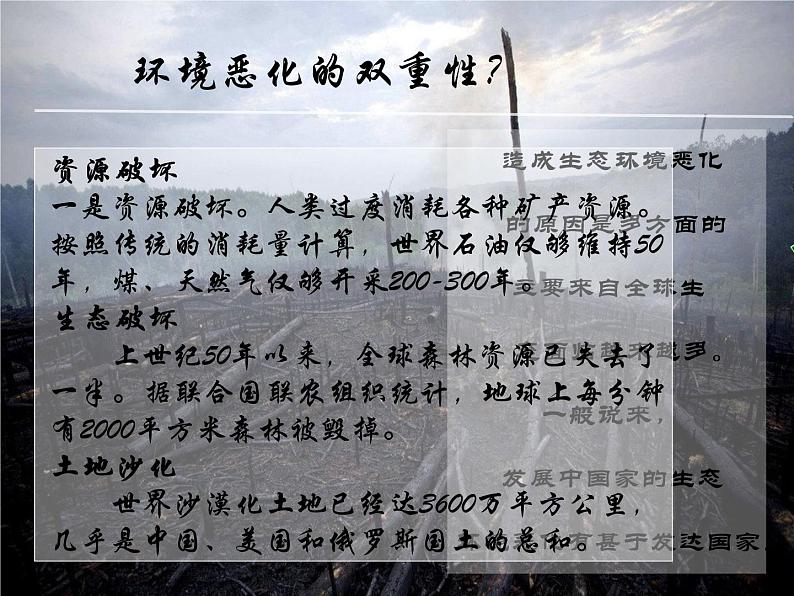 环境恶化的双重性？
资源破坏
一是资源破坏。人类过度消耗各种矿产资源。
按照传统的消耗量计算，世界石油仅够维持50
年，煤、天然气仅够开采200-300年。
生态破坏
上世纪50年以来，全球森林资源已失去了
一半。据联合国联农组织统计，地球上每分钟
有2000平方米森林被毁掉。
土地沙化
世界沙漠化土地已经达3600万平方公里，
几乎是中国、美国和俄罗斯国土的总和。
造成生态环境恶化
的原因是多方面的
主要来自全球生
面临越来越多。
一般说来，
发展中国家的生态
有甚于发达国家